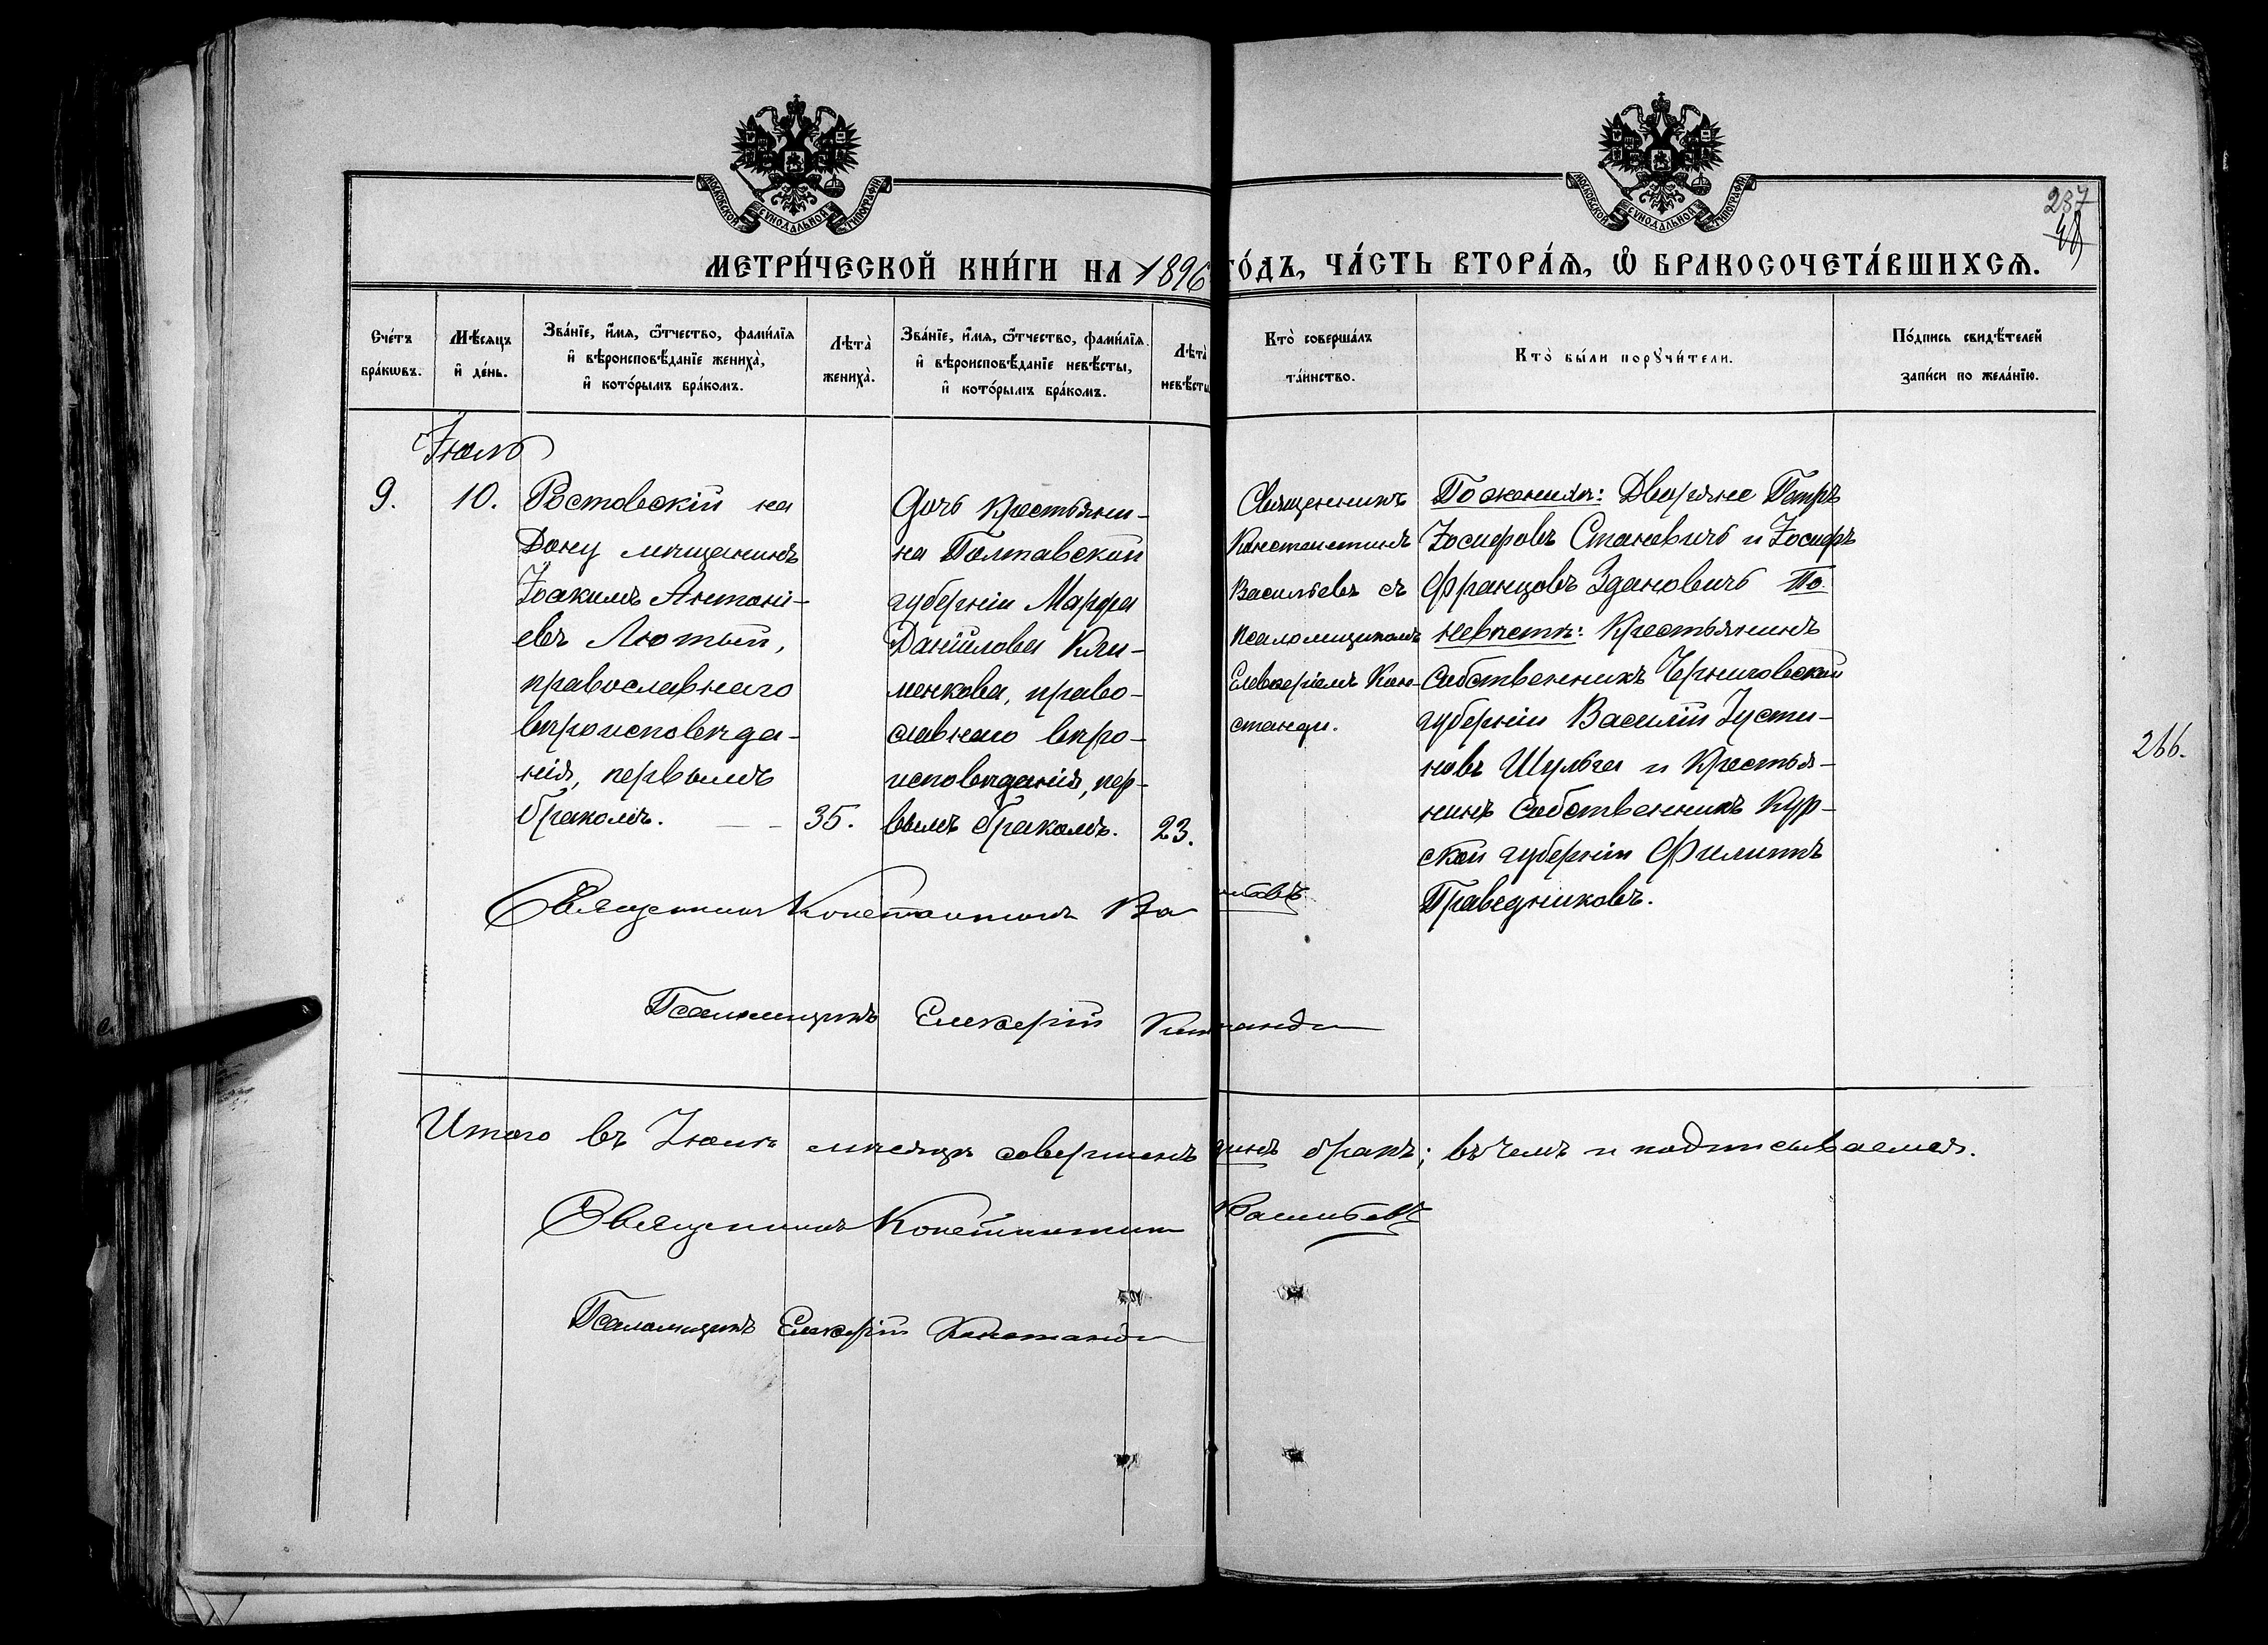 МОСКОВСКОЙ СѴНОДАЛЬНОЙ ТИПОГРАФІИ
МОСКОВСКОЙ СѴНОДАЛЬНОЙ ТИПОГРАФІИ
237
МЕТРИ́ЧЕСКОЙ КНИ́ГИ НА 1896 ГО́ДЪ, ЧА́СТЬ ВТОРА́Ѧ, Ѡ҆ БРАКОСОЧЕТА́ВШИХСѦ.
Сче́тъ
бра́кѡвъ.
Мѣ́сѧцъ
и҆ де́нь.
Зва́нїе, и҆́мѧ, ѻ҆́тчество, фамилі́ѧ
и҆ вѣроисповѣ́данїе жениха̀,
и҆ кото́рымъ бра́комъ.
Лѣта̀
жениха̀.
Зва́нїе, и҆́мѧ, ѻ҆́тчество, фамилі́ѧ
и҆ вѣроисповѣ́данїе невѣ́сты,
и҆ кото́рымъ бра́комъ.
Лѣта̀
невѣ́сты
Кто̀ соверша́лъ
та́инство.
Кто̀ бы́ли порꙋчи́тели.
По́дпись свидѣ́телей
за́писи по жела́нїю.
Іюль
9.
10.
Ростовскій на
Дону мѣщанинъ
Іоакимъ Антоні-
евъ Лютый,
православнаго
вѣроисповѣда-
нія, первымъ
бракомъ.
35.
Дочь крестьяни-
на Полтавской
губерніи Марфа
Даніилова Кли-
менкова, право-
славнаго вѣро-
исповѣданія, пер-
вымъ бракомъ.
23.
Священникъ
Константинъ
Васильевъ съ
псаломщикомъ
Елевферіемъ Кон-
станди.
По женихѣ: Дворяне Петръ
Іосифовъ Становичъ и Іосифъ
Францовъ Здановичъ По
невѣстѣ: Крестьянинъ
собственникъ Черниговской
губерніи Василій Іусти-
новъ Шульга и Крестья-
нинъ собственникъ Кур-
ской губерніи Филиппъ
Праведниковъ.
266.
Священникъ Константинъ Ва льевъ
Псаломщикъ Елевферій Констанди
Итого въ Іюлѣ мѣсяцѣ совершенъ одинъ бракъ; въ чемъ и подписываемся.
Священникъ Константинъ Васильевъ
Псаломщикъ Елевферій Констанди